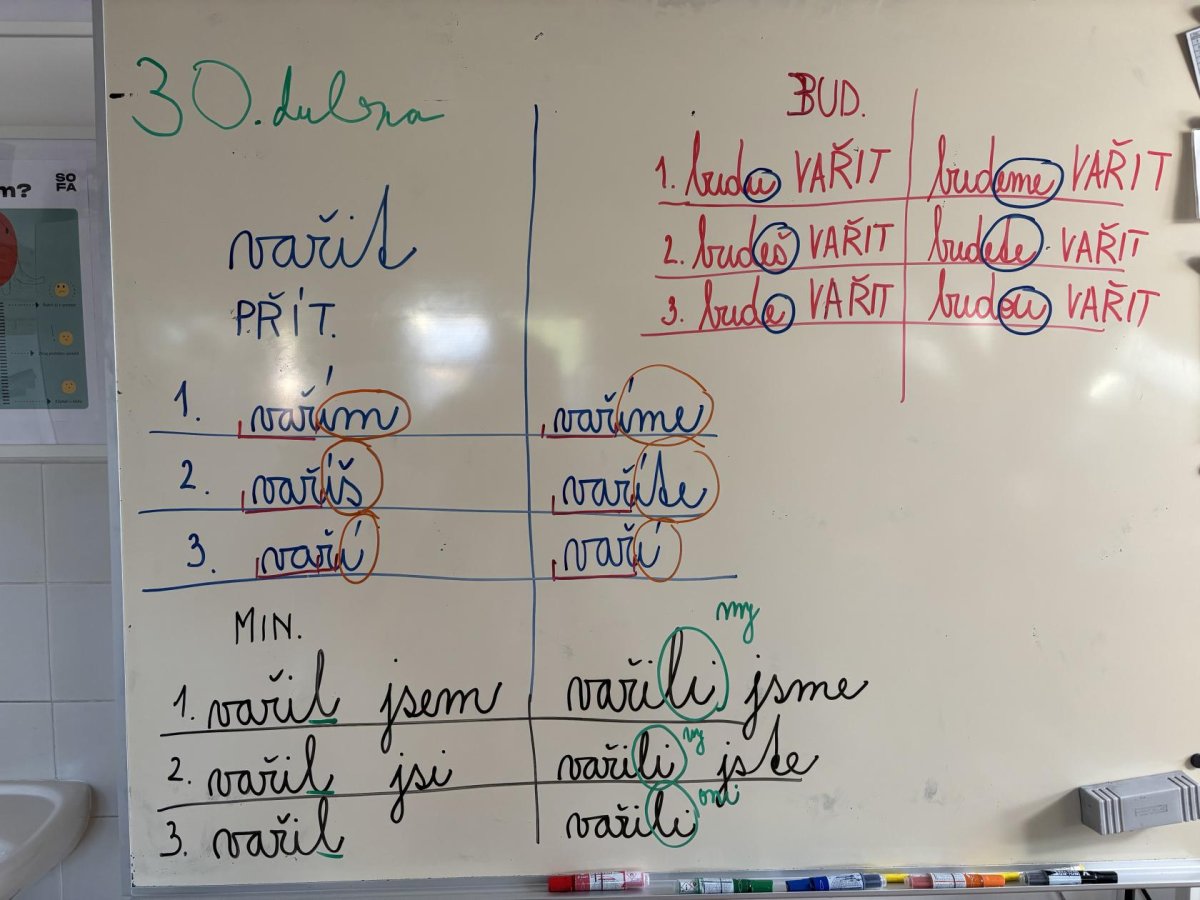 30. dubna
vařit
PŘÍT.
1. vařím vaříme
2. vaříš vaříte
3. vaří vaří
MIN.
1. vařil jsem vařili jsme my
2. vařil jsi vařili jste vy
3. vařil vařili oni
BUD.
1. budu VAŘIT budeme VAŘIT
2. budeš VAŘIT budete VAŘIT
3. bude VAŘIT budou VAŘIT
m?
SO
FA